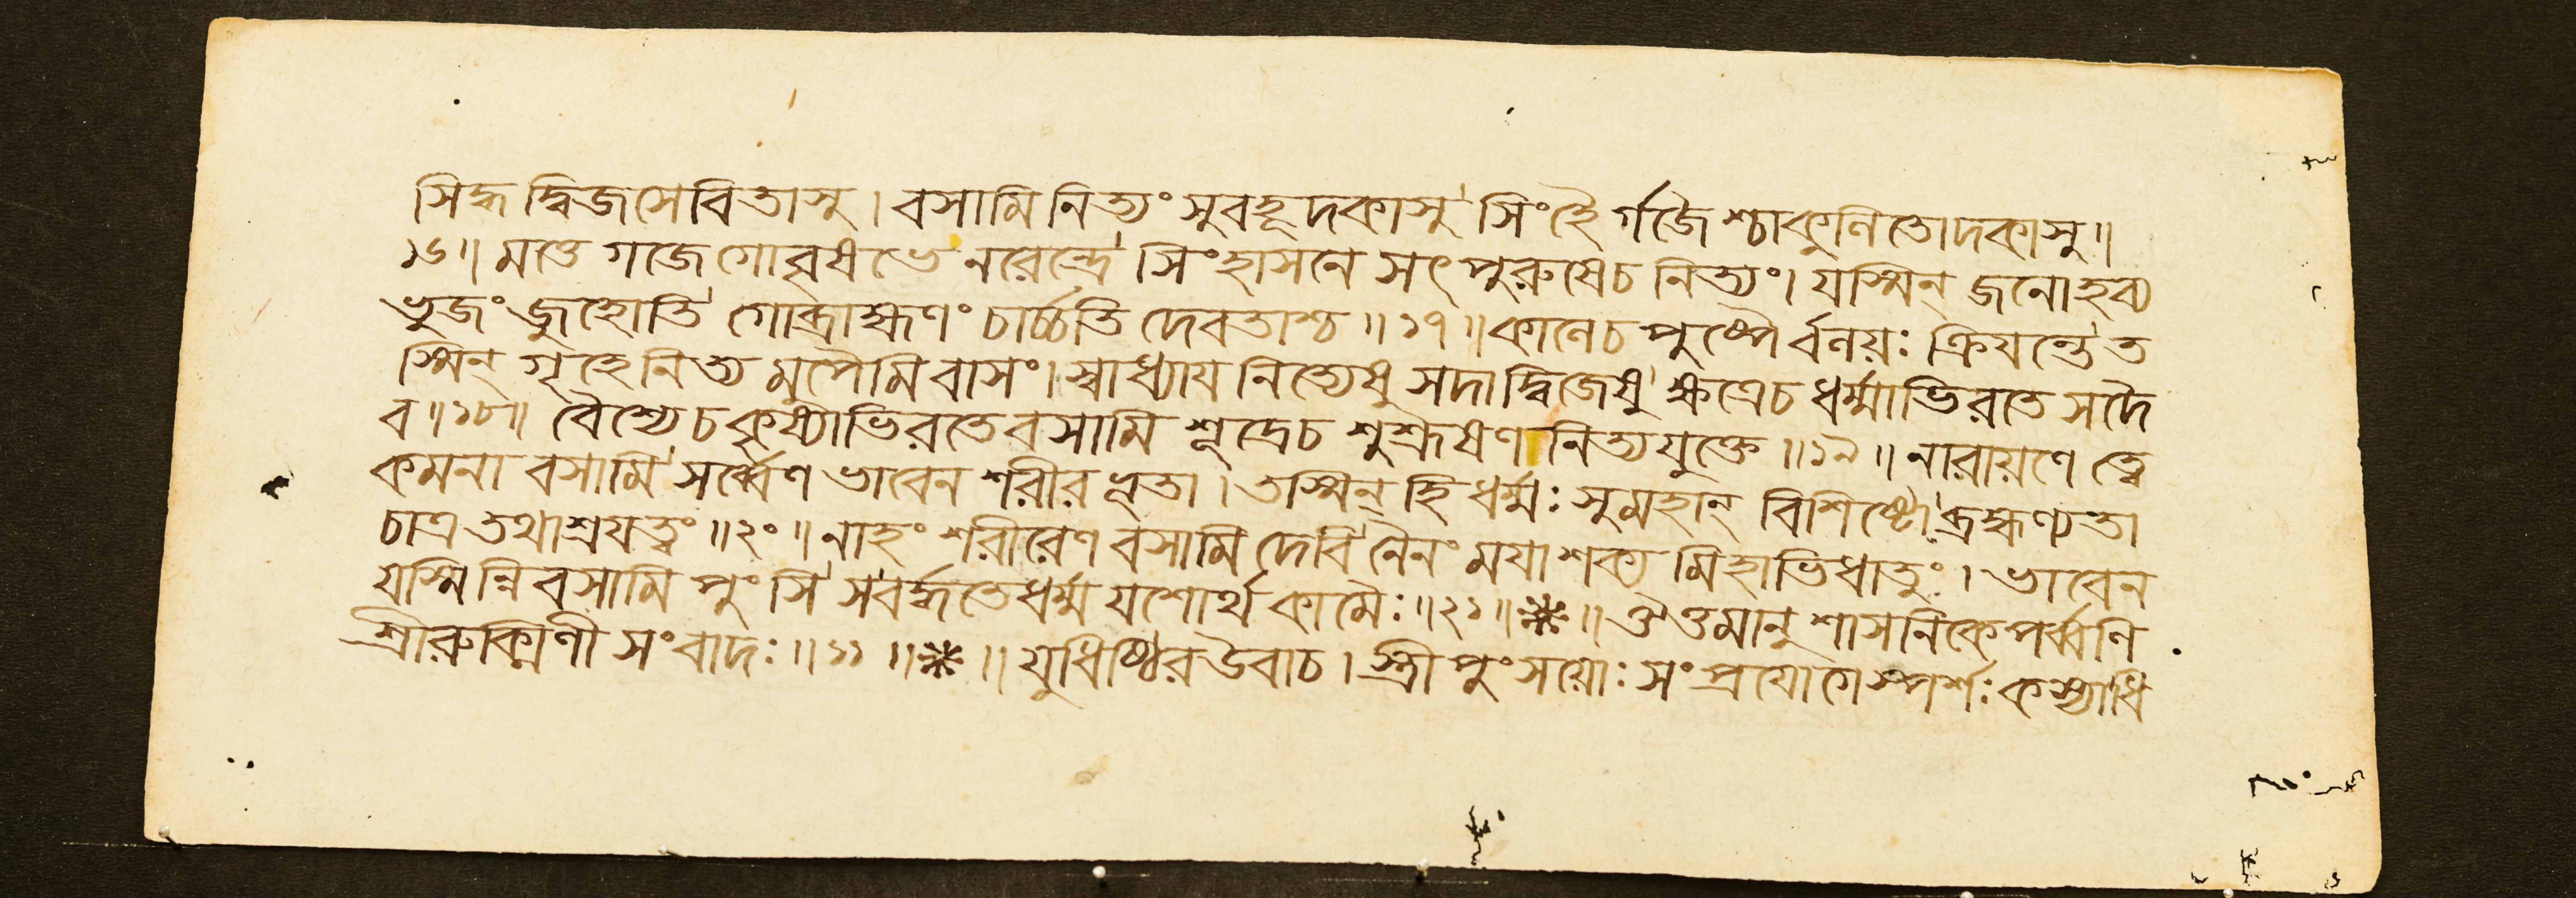 সিদ্ধদ্বিজসেবিতাসু। বসামি নিত্যং সুবহূদকাসু সিংহৈর্গজৈশ্চাকুলিতোদকাসু॥
১৬॥ মত্তে গজে গোবৃষভে নরেন্দ্রে সিংহাসনে সৎপুরুষেচ নিত্যং। যস্মিন্ জনো হব্য
ভুজং জুহোতি গোব্রাহ্মণং চার্চ্চতি দেবতাশ্চ॥১৭॥কালেচ পুষ্পৈর্বলয়ঃ ক্রিযন্তে ত
স্মিন্ গৃহে নিত্যমুপৈমি বাসং। স্বাধ্যায নিত্যেষু সদা দ্বিজেষু ক্ষত্রেচ ধর্ম্মাভিরতে সদৈ
ব॥১৮॥ বৈশ্যে চ কৃষ্যাভিরতে বসামি শূদ্রেচ শুশ্রূষণনিত্যযুক্তে॥১৯॥ নারায়ণে ত্বে
কমনা বসামি সর্ব্বেণ ভাবেন শরীরভূতা। তস্মিন্ হি ধর্ম্মঃ সুমহান্ বিশিষ্টো ব্রহ্মণ্যতা
চাত্র তথাশ্রযত্বং॥২০॥ নাহং শরীরেণ বসামি দেবি নৈনং মযা শক্যমিহাভিধাতুং। ভাবেন
যস্মিন্নিবসামি পুংসি সবর্দ্ধতে ধর্ম্ম যশোর্থ কামৈঃ॥২১॥❋॥ ঔত্তমানুশাসনিকে পর্ব্বণি
শ্রীরুক্মিণী সংবাদঃ॥১১॥❋॥ যুধিষ্ঠির উবাচ। স্ত্রীপুংসয়োঃ সংপ্রযোগে স্পর্শঃ কস্যাধি